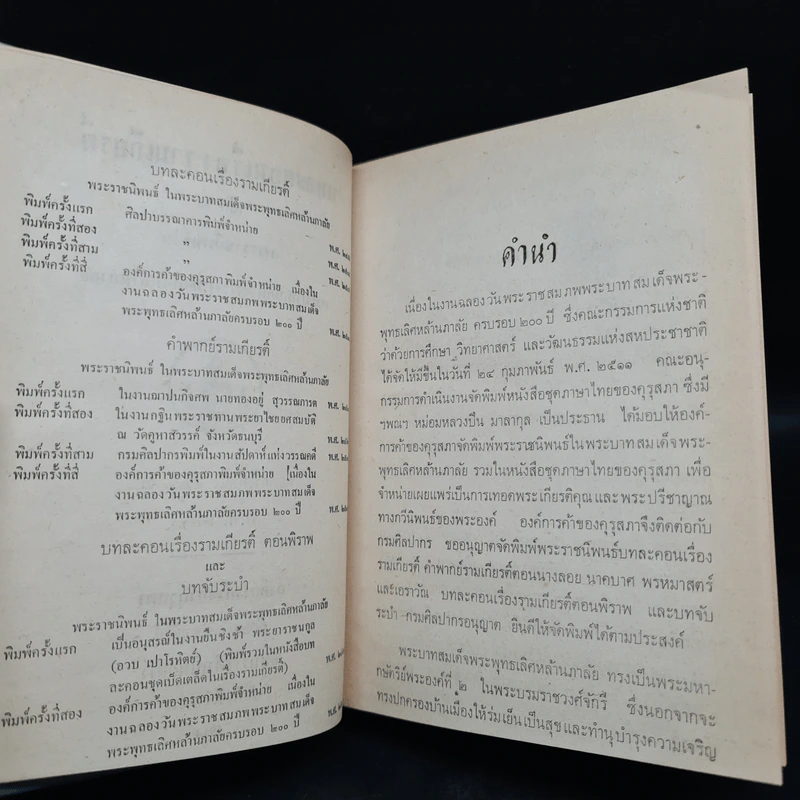 บทละคอนเรื่องรามเกียรติ์
พระราชนิพนธ์ ในพระบาทสมเด็จพระพุทธเลิศหล้านภาลัย
พิมพ์ครั้งแรก ศิลปาบรรณาคารพิมพ์จำหน่าย พ.ศ.
พิมพ์ครั้งที่สอง ” พ.ศ.
พิมพ์ครั้งที่สาม ” พ.ศ.
พิมพ์ครั้งที่สี่ องค์การค้าของคุรุสภาพิมพ์จำหน่าย เนื่องใน
งานฉลองวันพระราชสมภพพระบาทสมเด็จ
พระพุทธเลิศหล้านภาลัยครบรอบ ๒๐๐ ปี พ.ศ.
คำพากย์รามเกียรติ์
พระราชนิพนธ์ ในพระบาทสมเด็จพระพุทธเลิศหล้านภาลัย
พิมพ์ครั้งแรก ในงานฌาปนกิจศพ นายทองอยู่ สุวรรณภารต
พิมพ์ครั้งที่สอง ในงานกฐินพระราชทานพระยาไชยยศสมบัติ
ณ วัดคูหาสวรรค์ จังหวัดธนบุรี
พิมพ์ครั้งที่สาม กรมศิลปากรพิมพ์ในงานสัปดาห์แห่งวรรณคดี
พิมพ์ครั้งที่สี่ องค์การค้าของคุรุสภาพิมพ์จำหน่าย [เนื่องใน
งานฉลองวันพระราชสมภพพระบาทสมเด็จ
พระพุทธเลิศหล้านภาลัยครบรอบ ๒๐๐ ปี พ.ศ.
บทละคอนเรื่องรามเกียรติ์ ตอนพิราพ
และ
บทจับระบำ
พระราชนิพนธ์ ในพระบาทสมเด็จพระพุทธเลิศหล้านภาลัย
พิมพ์ครั้งแรก เป็นอนุสรณ์ในงานยืนชิงช้า พระยาราชนกูล
(อวบ เปาโรหิตย์) (พิมพ์รวมในหนังสือบท
ละคอนชุดเบ็ดเตล็ดในเรื่องรามเกียรติ์) พ.ศ.
พิมพ์ครั้งที่สอง องค์การค้าของคุรุสภาพิมพ์จำหน่าย เนื่องใน
งานฉลองวันพระราชสมภพพระบาทสมเด็จ
พระพุทธเลิศหล้านภาลัยครบรอบ ๒๐๐ ปี พ.ศ.
คำนำ
เนื่องในงานฉลองวันพระราชสมภพพระบาทสมเด็จพระ-
พุทธเลิศหล้านภาลัย ครบรอบ ๒๐๐ ปี ซึ่งคณะกรรมการแห่งชาติ
ว่าด้วยการศึกษา วิทยาศาสตร์ และวัฒนธรรมแห่งสหประชาชาติ
ได้จัดให้มีขึ้นในวันที่ ๒๔ กุมภาพันธ์ พ.ศ. ๒๕๑๑ คณะอนุ-
กรรมการดำเนินงานจัดพิมพ์หนังสือชุดภาษาไทยของคุรุสภา ซึ่งมี
ฯพณฯ หม่อมหลวงปิ่น มาลากุล เป็นประธาน ได้มอบให้องค์-
การค้าของคุรุสภาจัดพิมพ์พระราชนิพนธ์ในพระบาทสมเด็จพระ-
พุทธเลิศหล้านภาลัย รวมในหนังสือชุดภาษาไทยของคุรุสภา เพื่อ
จำหน่ายเผยแพร่เป็นการเทอดพระเกียรติคุณและพระปรีชาญาณ
ทางกวีนิพนธ์ของพระองค์ องค์การค้าของคุรุสภาจึงติดต่อกับ
กรมศิลปากร ขออนุญาตจัดพิมพ์พระราชนิพนธ์บทละคอนเรื่อง
รามเกียรติ์ คำพากย์รามเกียรติ์ตอนนางลอย นาคบาศ พรหมาสตร์
และเอราวัณ บทละคอนเรื่องรามเกียรติ์ตอนพิราพ และบทจับ
ระบำ กรมศิลปากรอนุญาต ยินดีให้จัดพิมพ์ได้ตามประสงค์
พระบาทสมเด็จพระพุทธเลิศหล้านภาลัย ทรงเป็นพระมหา-
กษัตริย์พระองค์ที่ ๒ ในพระบรมราชวงศ์จักรี ซึ่งนอกจากจะ
ทรงปกครองบ้านเมืองให้ร่มเย็นเป็นสุขและทำนุบำรุงความเจริญ